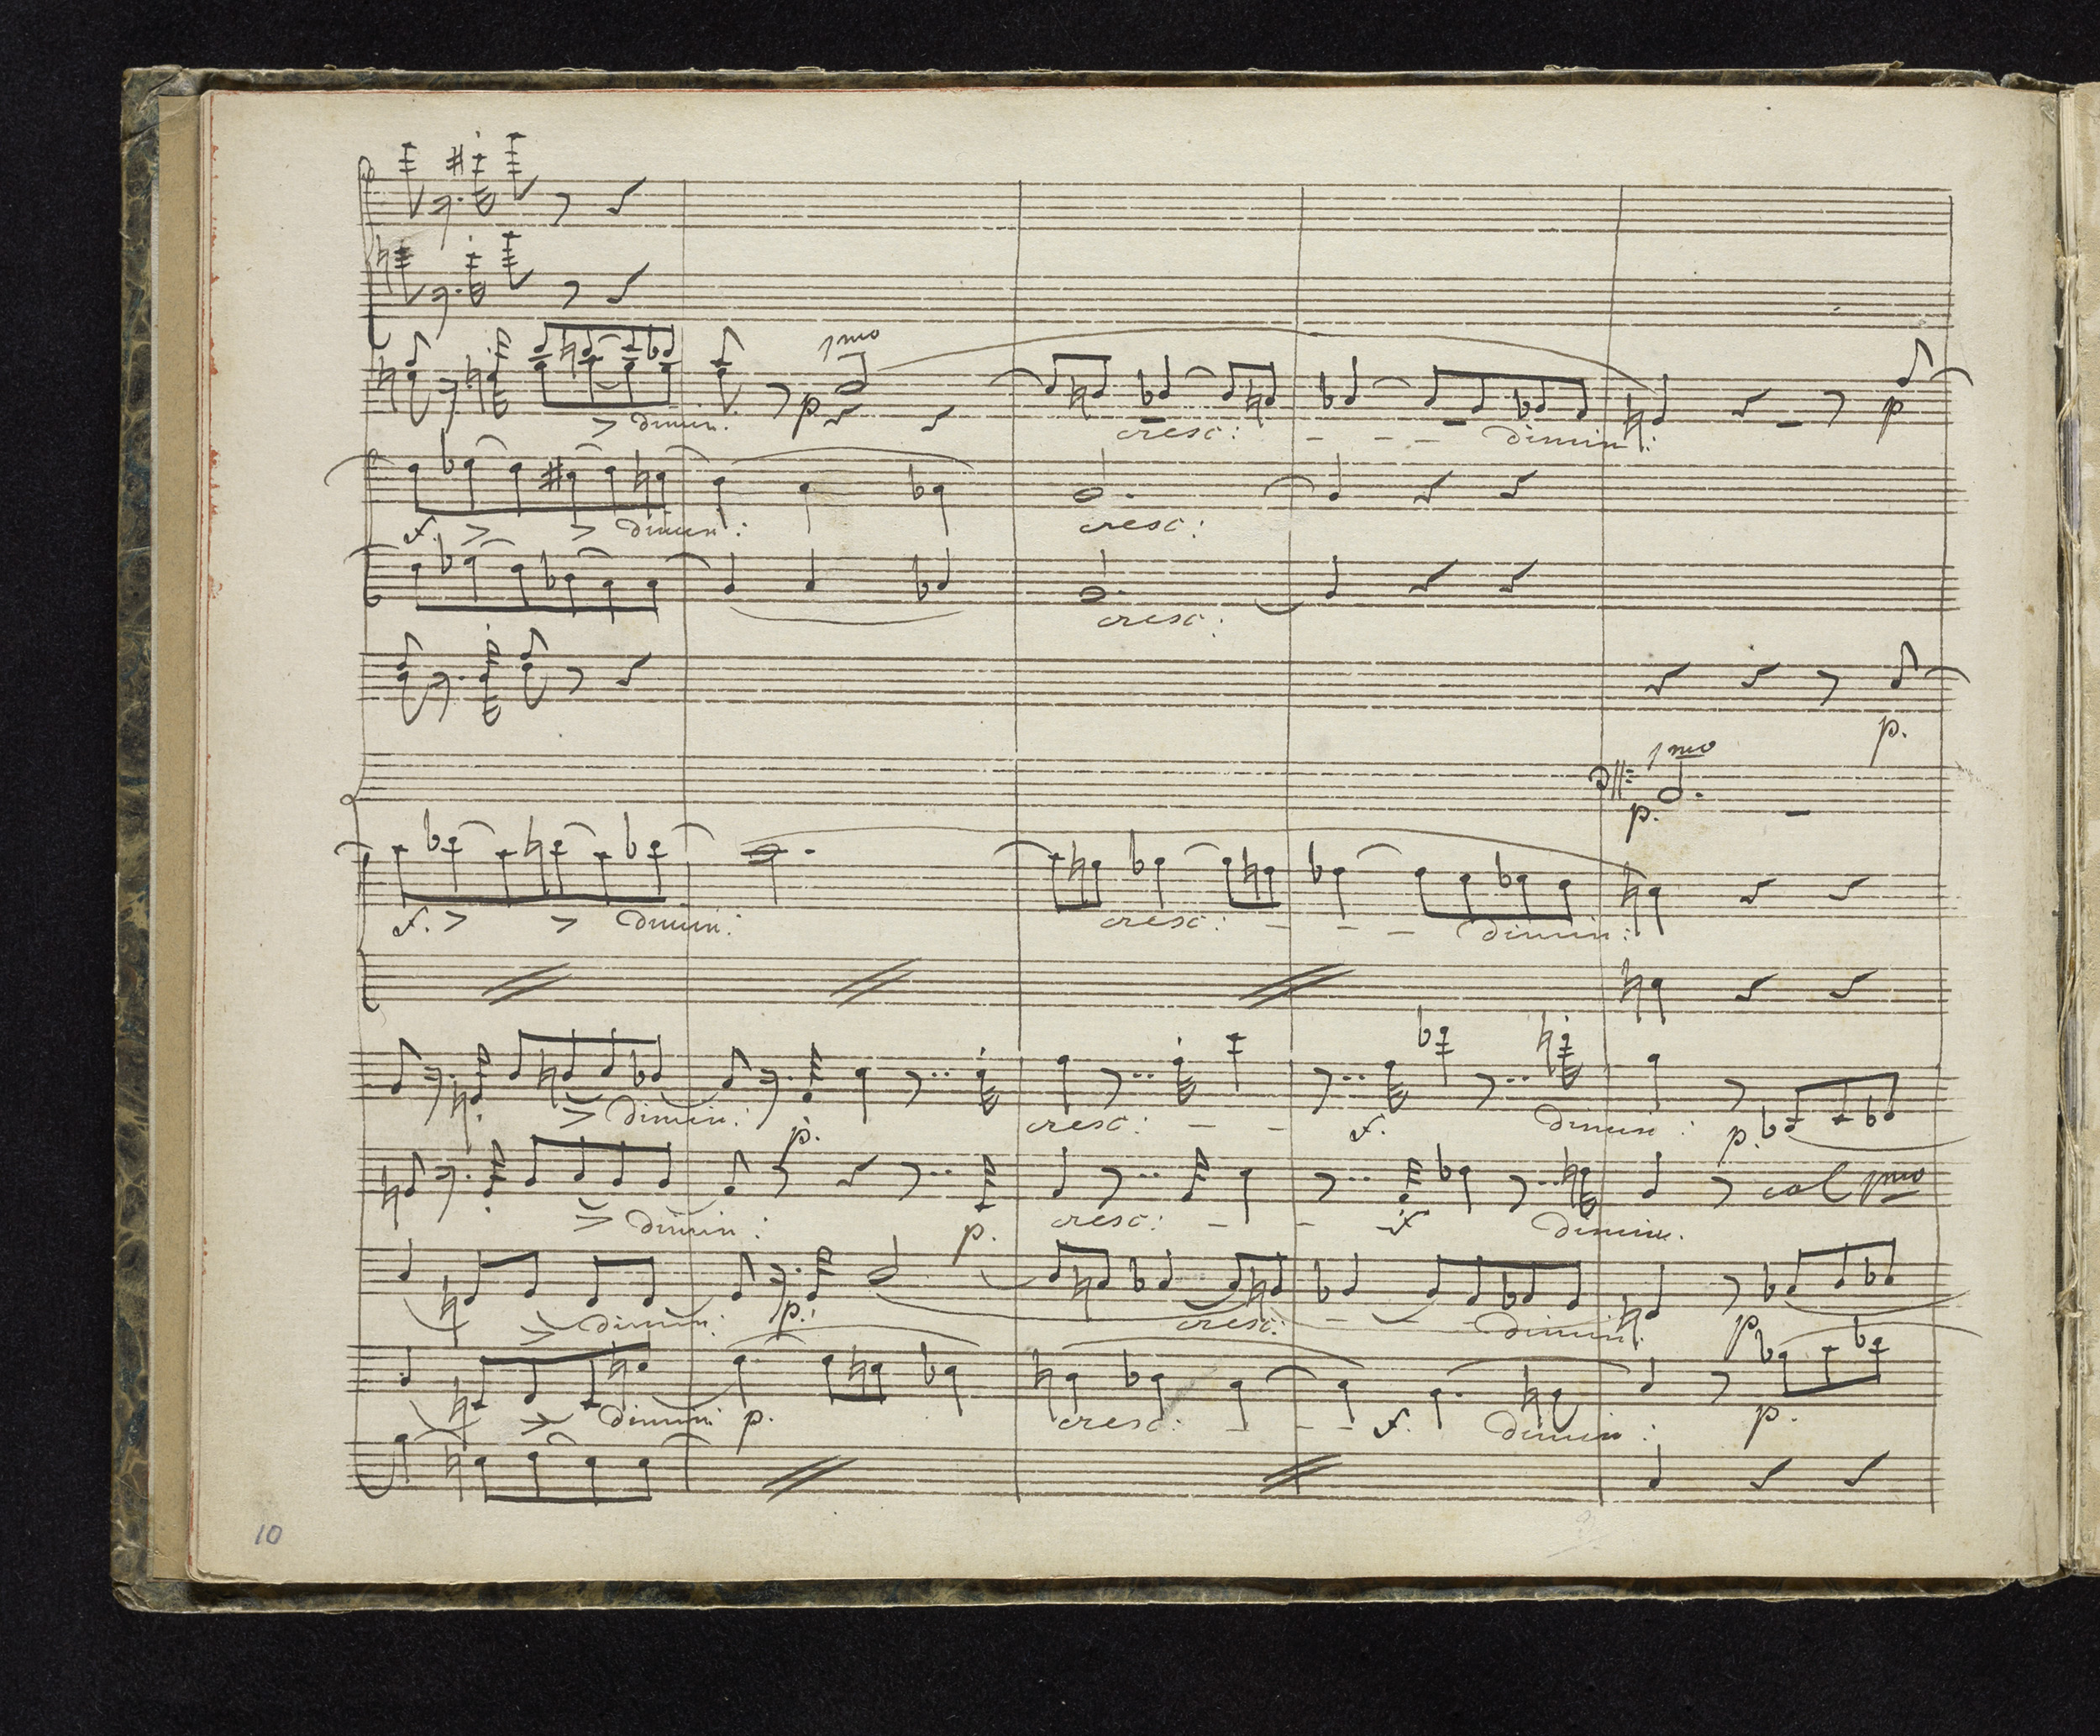 1mo
p
> dimin:
cresc: - - - dimin:
p
f. > > dimin:
cresc:
cresc:
p.
1mo
p.
f. > > dimin:
cresc: - - - dimin:
> dimin:
p.
cresc: - -
f.
dimin:
p.
> dimin:
p.
cresc: - - f
dimin.
col 1mo
> dimin:
p.
cresc: - - - dimin:
p
> dimin:
p.
cresc: - - - f.
dimin:
p.
10